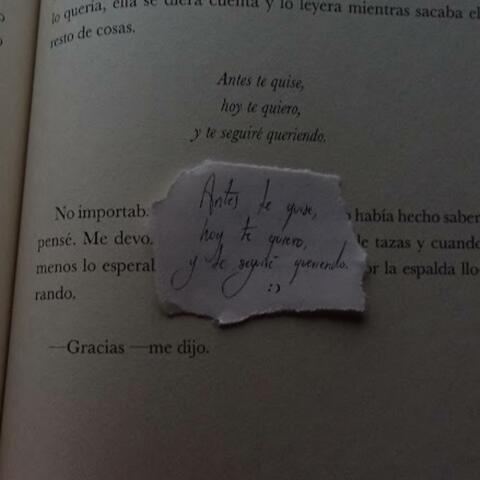 lo quería, ella se diera cuenta y lo leyera mientras sacaba el
resto de cosas.
Antes te quise,
hoy te quiero,
y te seguiré queriendo.
No importab
había hecho saber
pensé. Me devo
de tazas y cuando
menos lo esperab
por la espalda llo-
rando.
—Gracias —me dijo.
Antes te quise,
hoy te quiero,
y te seguiré queriendo.
:)